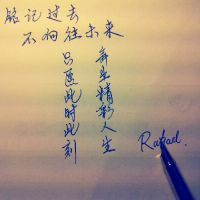 铭记过去
不向往未来
只此时此刻
精彩人生
Rafael.